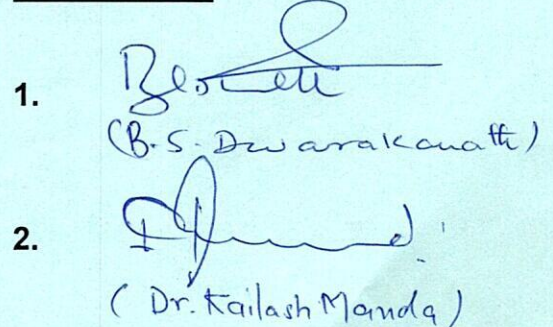 1.
(B.S. Dwarakanath)
2.
(Dr. Kailash Manda)